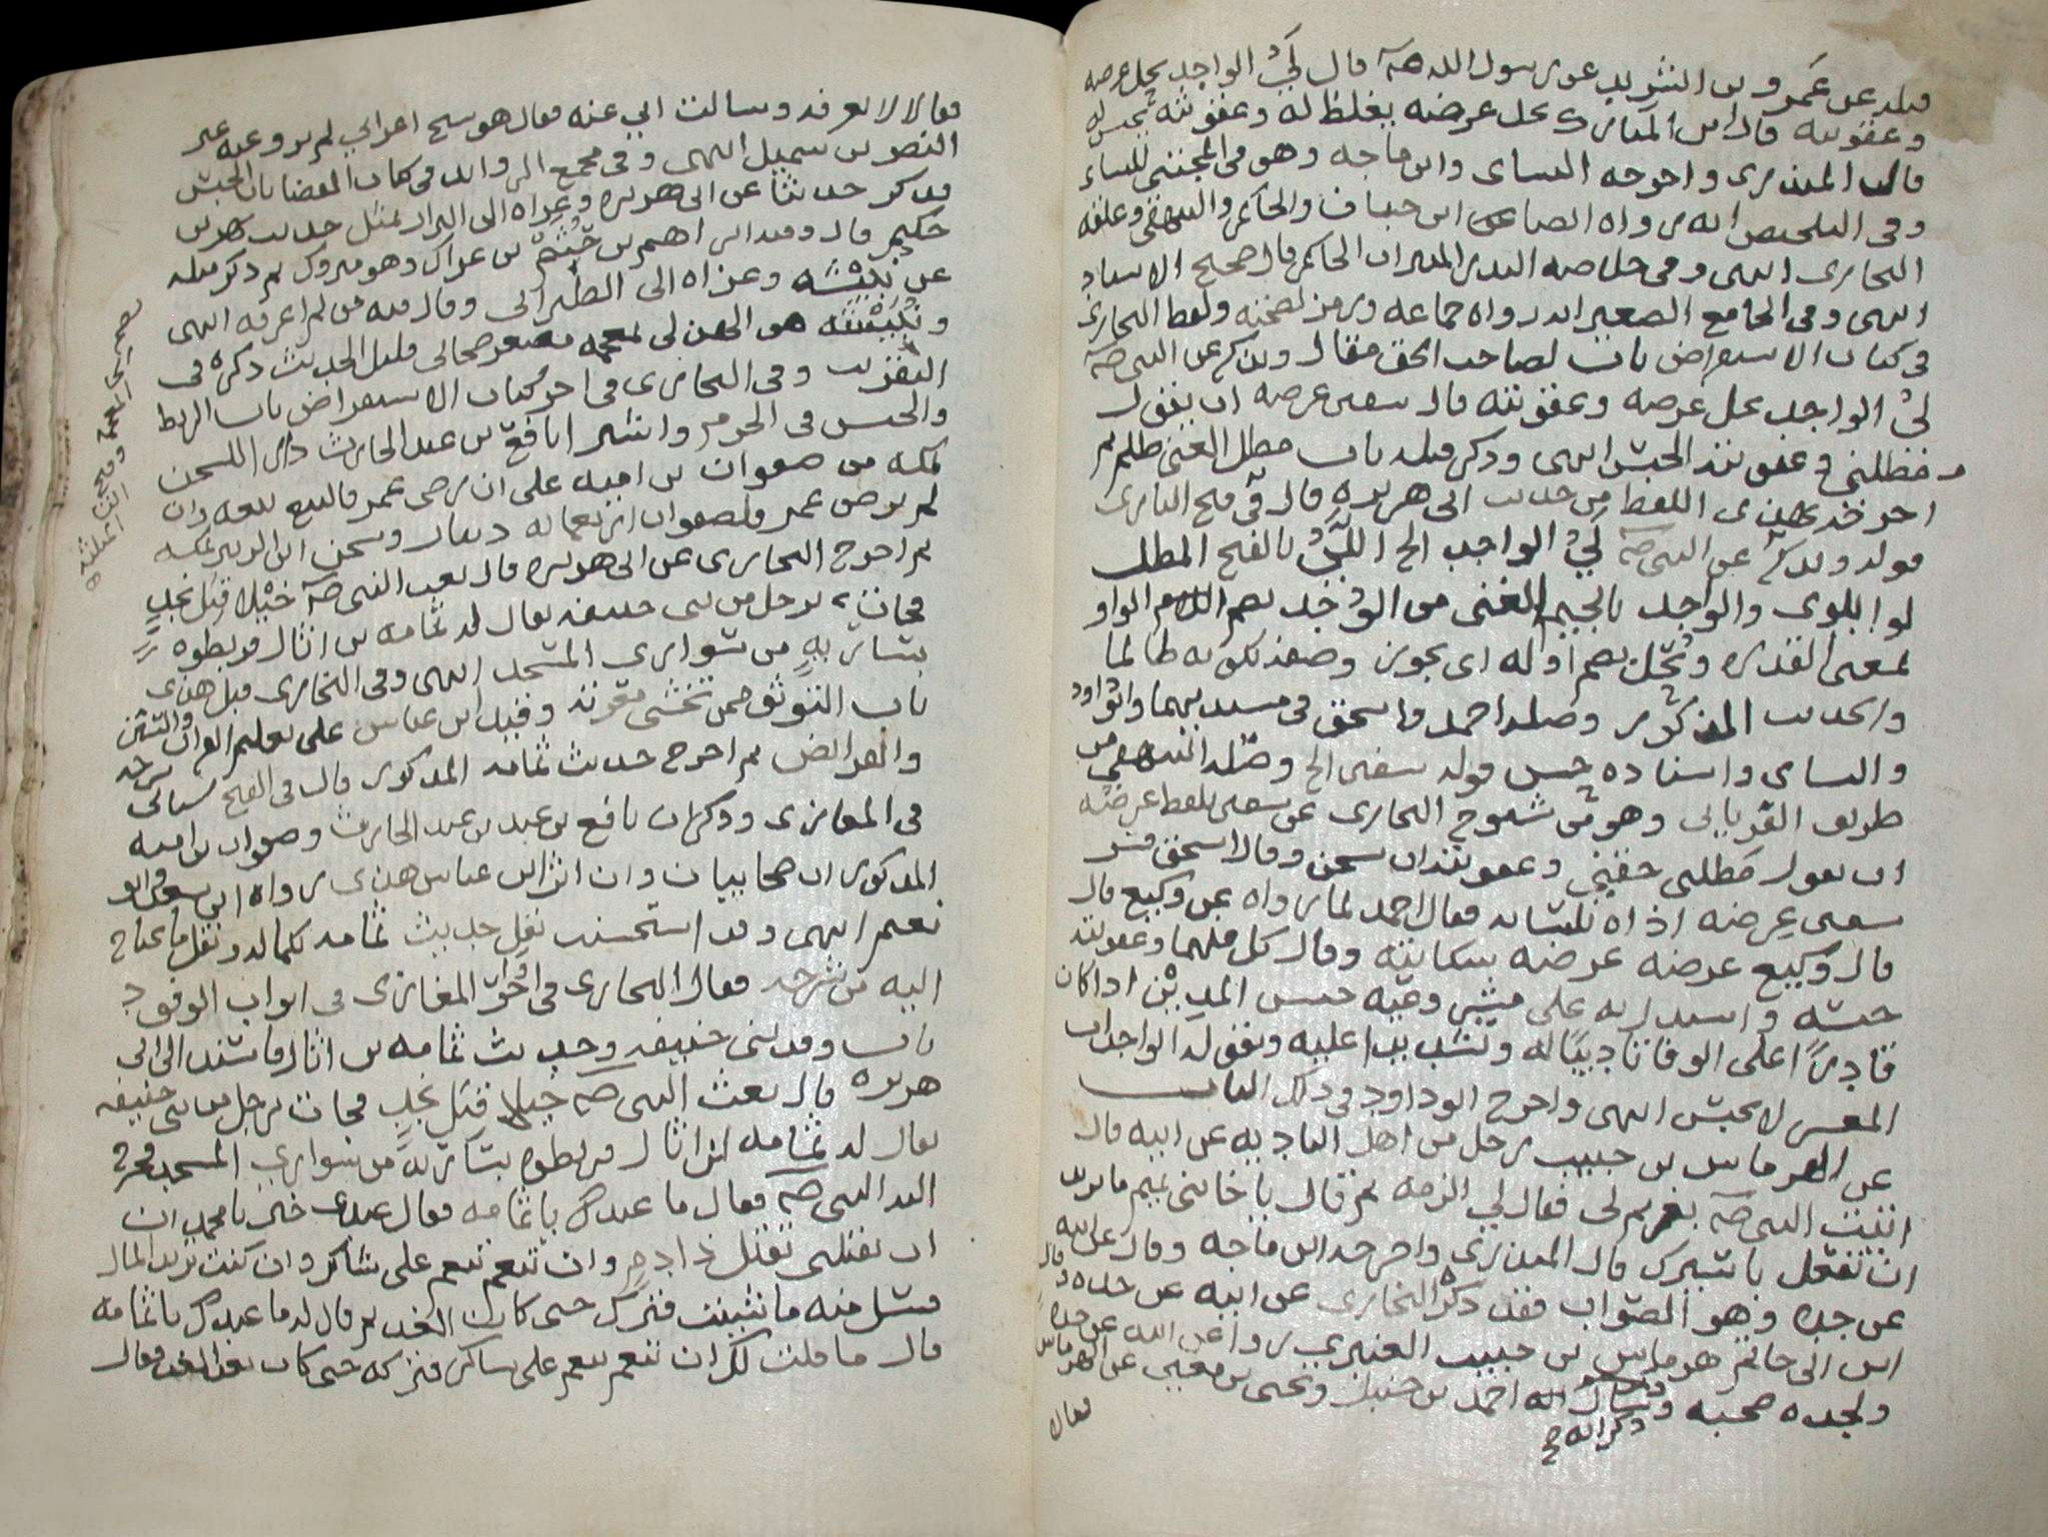 قبله عن عمرو بن الشريد عن رسول الله صه قال ليُّ الواجد يحل عرضه
وعقوبته قال ابن المبارك يحل عرضه يغلظ له وعقوبته يحبس له
قال المنذري واخرجه النساى وابن ماجه وهو في المجتبى للنساء
وفي التلخيص انه رواه ايضا ابن حبان والحاكم والبيهقي وعلقه
البخاري انتهى وفي خلاصه البدر المنير ان الحاكم قال صحيح الاسناد
انتهى وفي الجامع الصغير انه رواه جماعه ورمز لصحته ولفظ البخاري
في كتاب الاستقراض باب لصاحب الحق مقال ويذكر عن النبي صه
ليُّ الواجد يحل عرضه وعقوبته قال سفين عرضه ان يقول
مطلتني وعقوبته الحبس انتهى وذكر قبله باب مطل الغنى ظلم ثم
اخرجه بهذى اللفظ من حديث ابى هريره قال في فتح البارى
قوله ويذكر عن النبي صه ليُّ الواجد الخ الليُّ بالفتح المطل
لوا يلوى والواجد بالجيم الغنى من الوُجد بضم الواو
بمعنى القدره ويُحل بضم اوله اى يجوز وصفه بكونه ظالما
والحديث المذكور وصله احمد واسحق في مسنديهما وابو داود
والنساى واسناده حسن قوله سفين الخ وصله البيهقي من
طريق الفريابى وهو من شيوخ البخارى عن سفين بلفظ عرضه
ان يقول مطلنى حقي وعقوبته ان يسجن وقال اسحق فسر
سفين عرضه اذاه بلسانه فقال احمد لما رواه عن وكيع قال
قال وكيع عرضه شكايته وقال كل منهما وعقوبته
حبسه واستدل به على حبس المدين اذا كان
قادرًا على الوفا تاديبًا له وتشديدا عليه وبقوله الواجد ان
المعسر لا يحبس انتهى واخرج ابو داود في ذلك الباب
عن الهرماس بن حبيب رجل من اهل الباديه عن ابيه قال
اتيت النبي صه بغريم لى فقال لي الزمه ثم قال يا خا بنى تميم ما تريد
ان تفعل باسيرك قال المنذرى واخرجه ابن ماجه وقال عن ابيه
عن جده وهو الصواب فقد ذكره البخارى عن ابيه عن جده وقال
ابن ابى حاتم هرماس بن حبيب العنبرى روا عن ابيه عن جده
ولجده صحبه وسال احمد بن حنبل ويحيى بن معين عن الهرماس
ذكر انه
فقال
فقالا لا نعرفه وسالت ابي عنه فقال هو شيخ اعرابي لم يرو عنه غير
النضر بن شميل انتهى وفي مجمع الزوايد في كتاب القضا باب الحبس
فذكر حديثا عن ابى هريره وعزاه الى البزار بمثل حديث بهز بن
حكيم قال وفيه ابراهيم بن خُثيم بن عراك وهو متروك ثم ذكر مثله
عن نبيشه وعزاه الى الطبرانى وقال فيه من لم اعرفه انتهى
ونُبَيْشه هو الهذلي بمعجمه مصغر صحابى قليل الحديث ذكره في
التقريب وفي البخارى في اخر كتاب الاستقراض باب الربط
والحبس في الحرم واشترا نافع بن عبد الحارث دارا للسجن
بمكه من صفوان بن اميه على ان رضى عمر فالبيع بيعه وان
لم يرض عمر فلصفوان اربعمايه دينار وسجن ابن الزبير بمكه
ثم اخرج البخارى عن ابى هريره قال بعث النبي صه خيلا قِبَل نجدٍ
فجات برجل من بنى حنيفه يقال له ثمامه بن اثال فربطوه
بساريه من سوارى المسجد انتهى وفي البخارى قبل هذى
باب التوثق ممن تخشى معرته وقيد ابن عباس على تعليم القران والسنن
والفرايض ثم اخرج حديث ثمامه المذكور قال في الفتح سياتى شرحه
في المغازى وذكر ان نافع بن عبد الحارث وصفوان بن اميه
المذكورين صحابيان وان اثر ابن عباس هذى رواه ابن سعد وابو
نعيم انتهى وقد استحسنت نقل حديث ثمامه بكماله ونقل ما يحتاج
اليه من شرحه فقال البخارى في اخر المغازى في ابواب الوفود
باب وفد بنى حنيفه وحديث ثمامه بن اثال فاسند الى ابى
هريره قال بعث النبي صه خيلا قِبَل نجدٍ فجات برجل من بنى حنيفه
يقال له ثمامه ابن اثال فربطوه بساريه من سوارى المسجد فخرج
اليه النبي صه فقال ما عندك يا ثمامه فقال عندى خير يا محمد ان
ان تقتلنى تقتل ذا دم وان تنعم تنعم على شاكر وان كنت تريد المال
فسل منه ما شيت فترك حتى كان الغد ثم قال له ما عندك يا ثمامه
قال ما قلت لك ان تنعم تنعم على شاكر فتركه حتى كان بعد الغد فقال